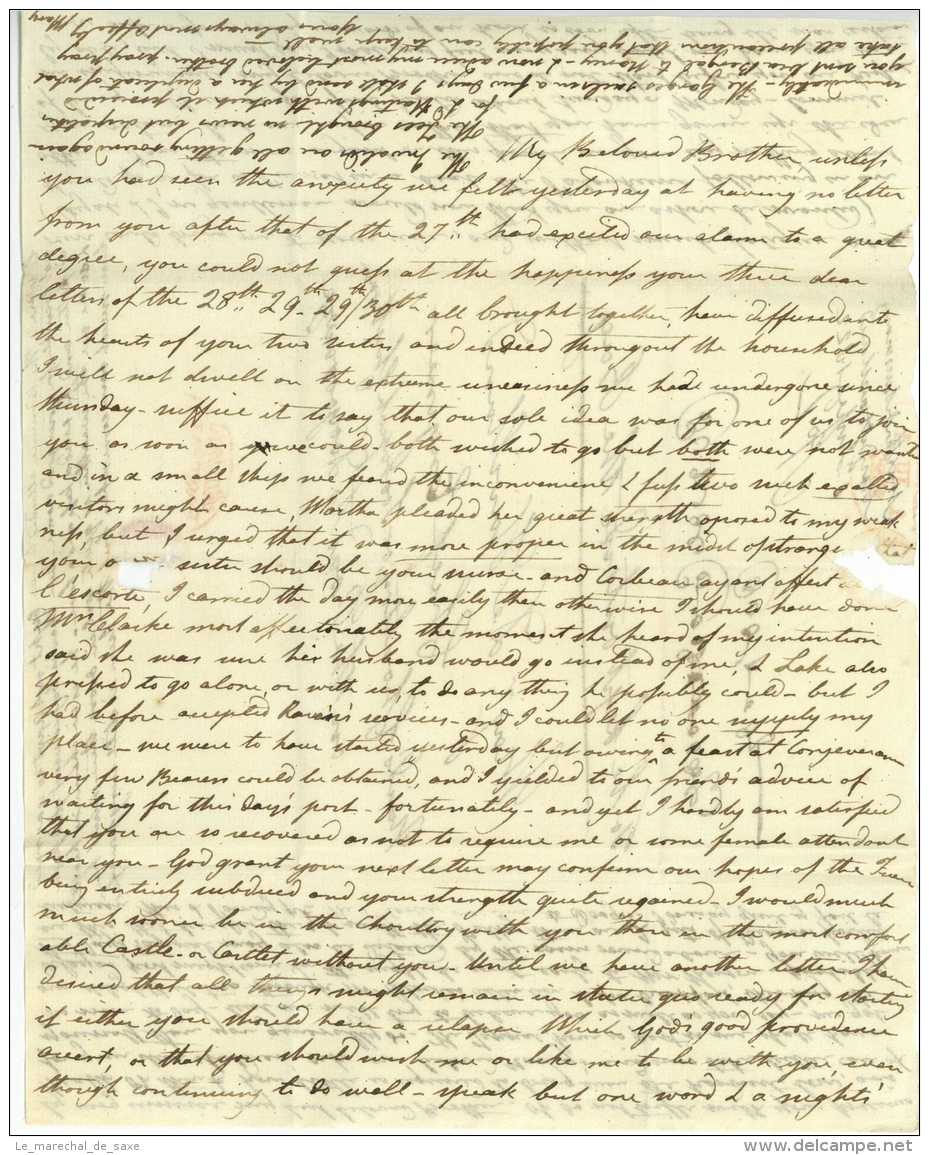 My Beloved Brother unless
you had seen the anxiety we felt yesterday at having no letter
from you after that of the 27th had excited our alarm to a great
degree, you could not guess at the happiness your three dear
letters of the 28th 29th 29th/30th all brought together, have diffused into
the hearts of your two sisters and indeed throughout the household
I will not dwell on the extreme uneasiness we had undergone since
thursday - suffice it to say that our sole idea was for one of us to join
you as soon as we could - both wished to go but both were not wanted
and in a small ship we feared the inconvenience & fuss two such
visitors might cause, Martha pleaded her great strength oposed to my weak
ness, but I urged that it was more proper in the midst of strange
your sister should be your nurse - and Corbeau ayant offert
l'escorte, I carried the day more easily than otherwise I should have done
Mrs Clarke most affectionately the moment she heard of my intention
said she was sure her husband would go instead of me, & Lake also
pressed to go alone, or with us, to do any thing he possibly could - but I
had before accepted Raven's services - and I could let no one supply my
place - we were to have started yesterday but owing to a feast at Conjeveram
very few Bearers could be obtained, and I yielded to our friend's advice of
waiting for this day's post - fortunately - and yet I hardly am satisfied
that you are so recovered as not to require me or some female attendant
near you - God grant your next letter may confirm our hopes of the Fever
being entirely subdued and your strength quite regained - I would much
much sooner be in the Choultry with you than in the most comfort
able Castle - or Castlet without you - Until we have another letter I have
desired that all things might remain in statu quo ready for starting
if either you should have a relapse Which God's good providence
avert, or that you should wish me or like me to be with you, even
though continuing to do well - speak but one word & a nights'
The Invalids are all getting round again
The Fees brought no news but duplicates
for Ld Hastings with which it proceeded
immediately - The Ganges sails in a few days I shall send by her a duplicate of what
you sent via Bengal to Money - & now adieu my most beloved brother, pray pray
take all precautions that you possibly can to keep well -
Yours always most affecty
Mary
Le_marechal_de_saxe